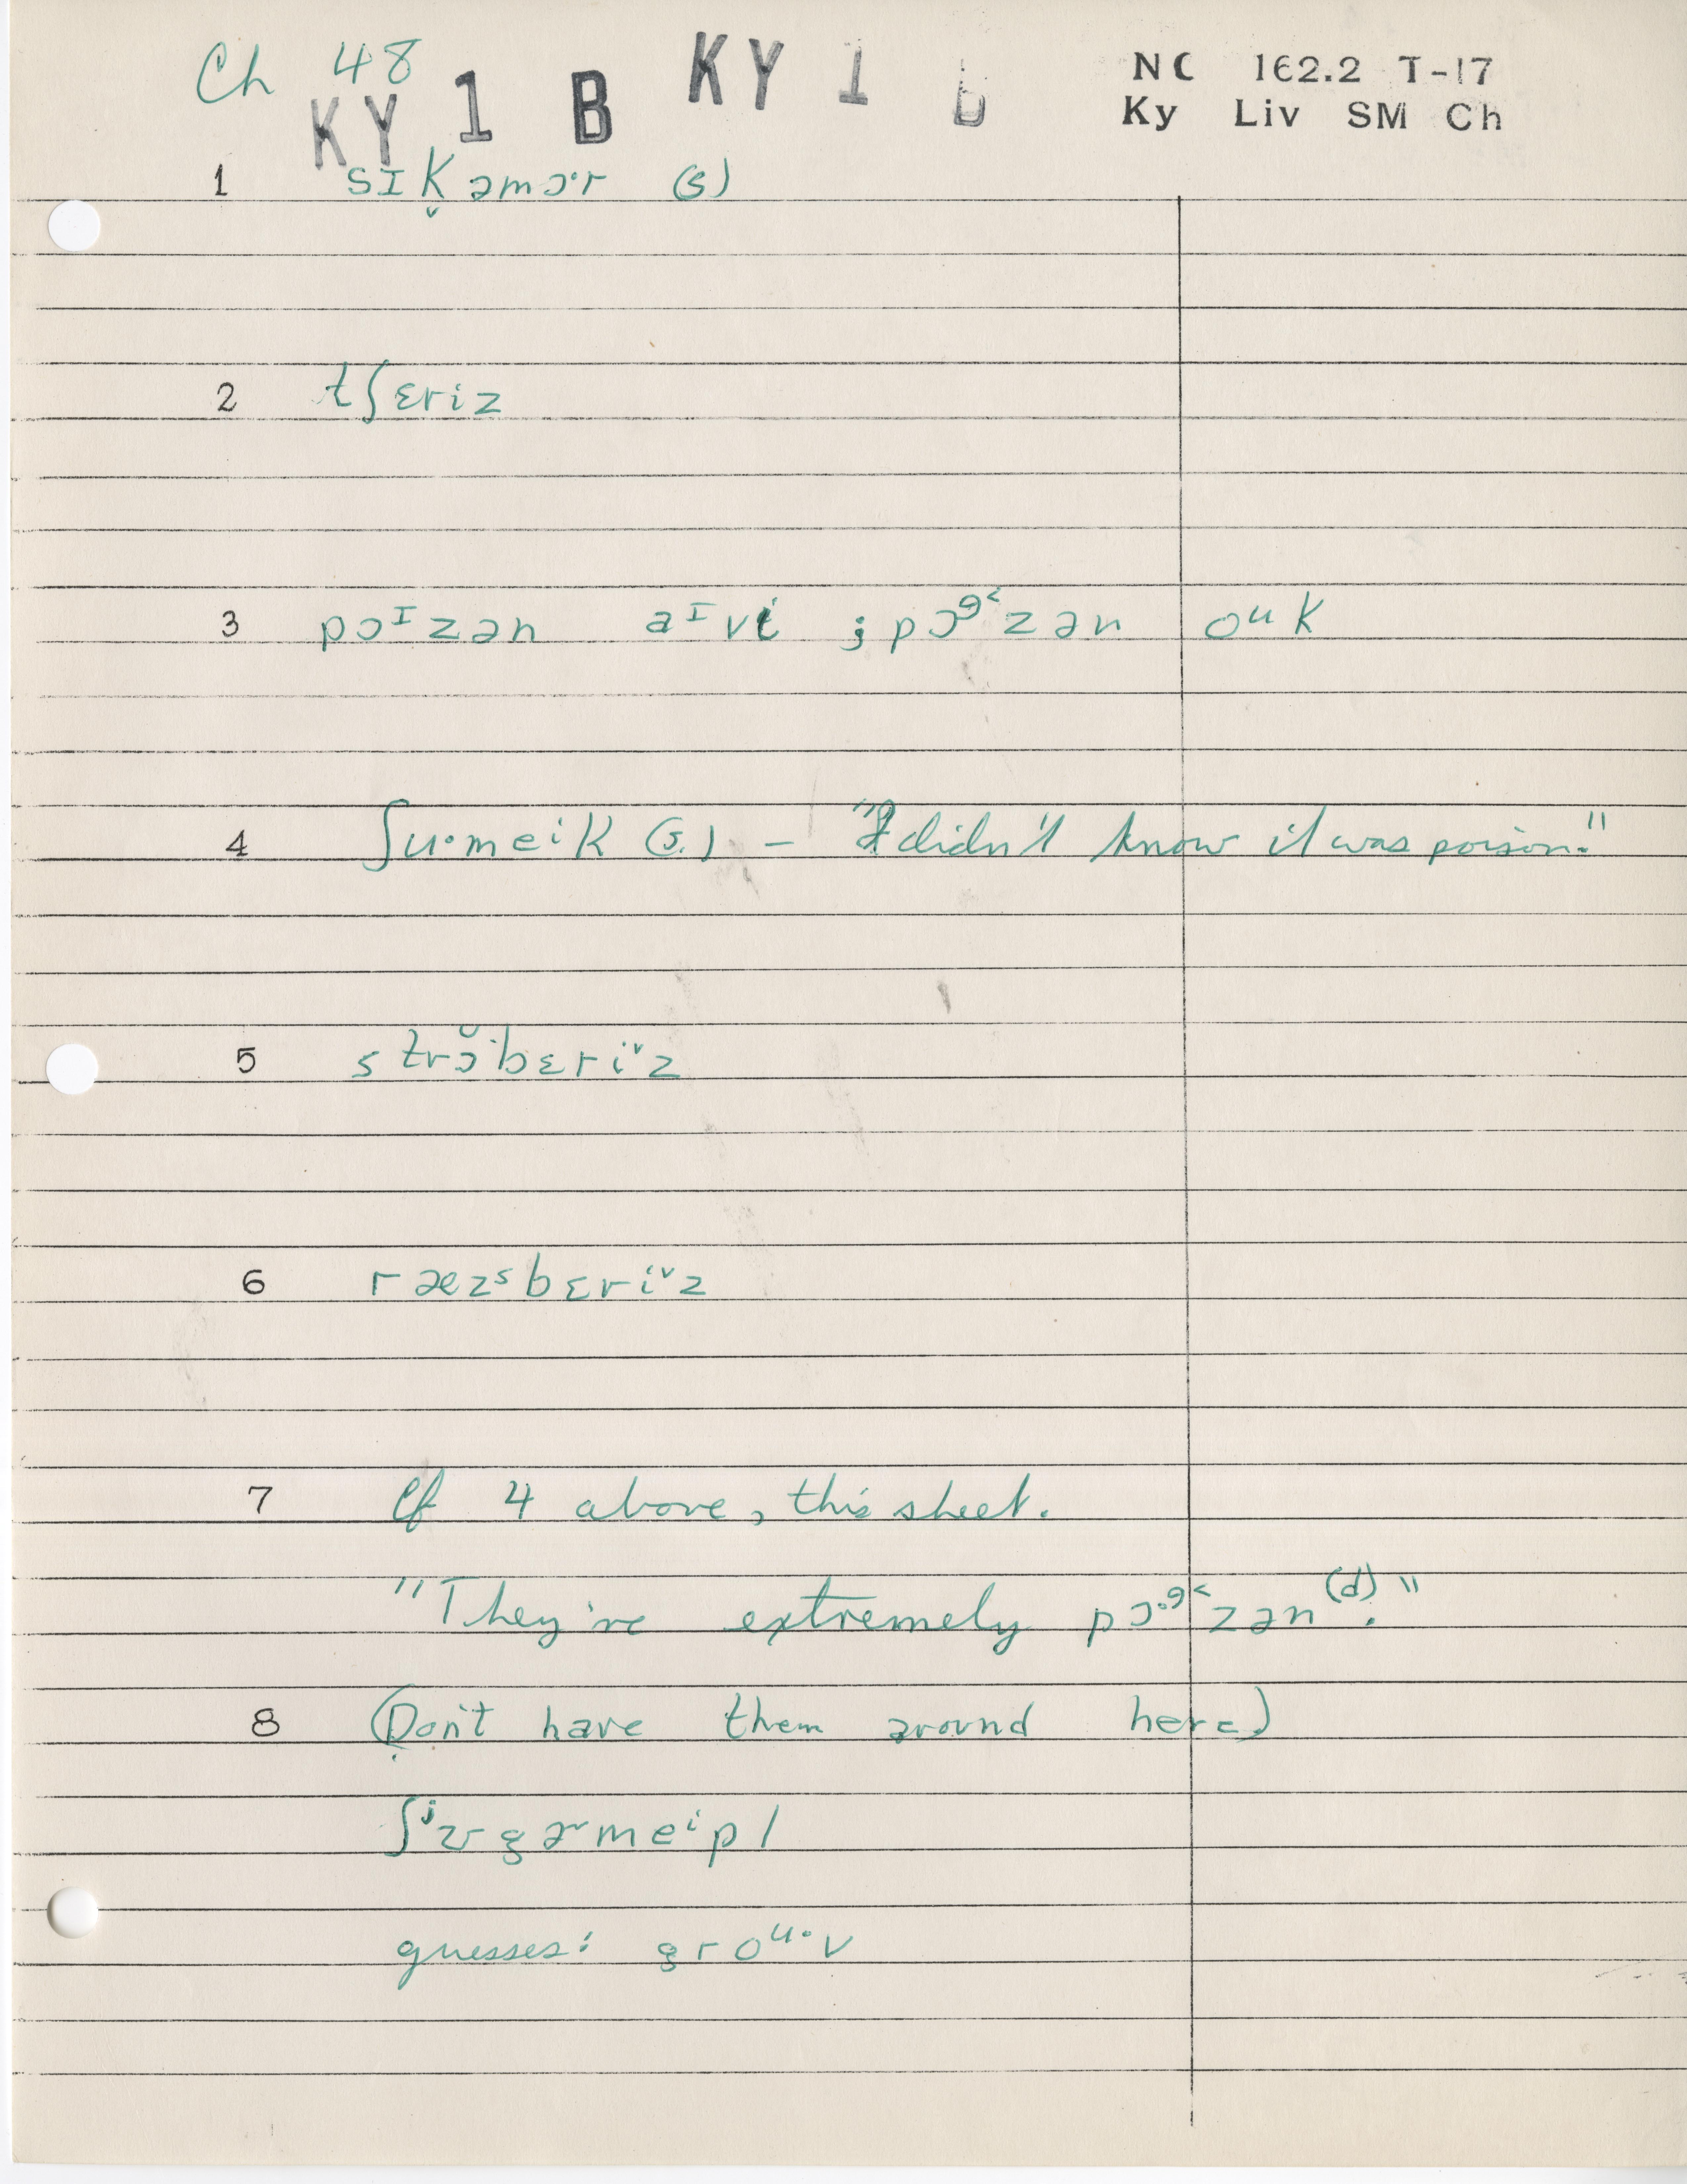 Ch 48 KY 1 B KY 1 B NC 162.2 T-17
Ky Liv SM Ch
1 sɪk̬əmɔ·r (s)
2 tʃɛriz
3 pɔɪzən aɪvi ; pɔ૭˂zən ouk
4 ʃu·meik (s.) – "I didn't know it was poison."
5 strɔ̆·bɛriᵛz
6 ræzˢbɛriᵛz
7 Cf 4 above, this sheet.
"They're extremely pɔ·૭˂zən⁽ᵈ⁾."
8 (Don't have them around here.)
ʃʲʊgɚmeⁱpl
guesses: groᵘ·v